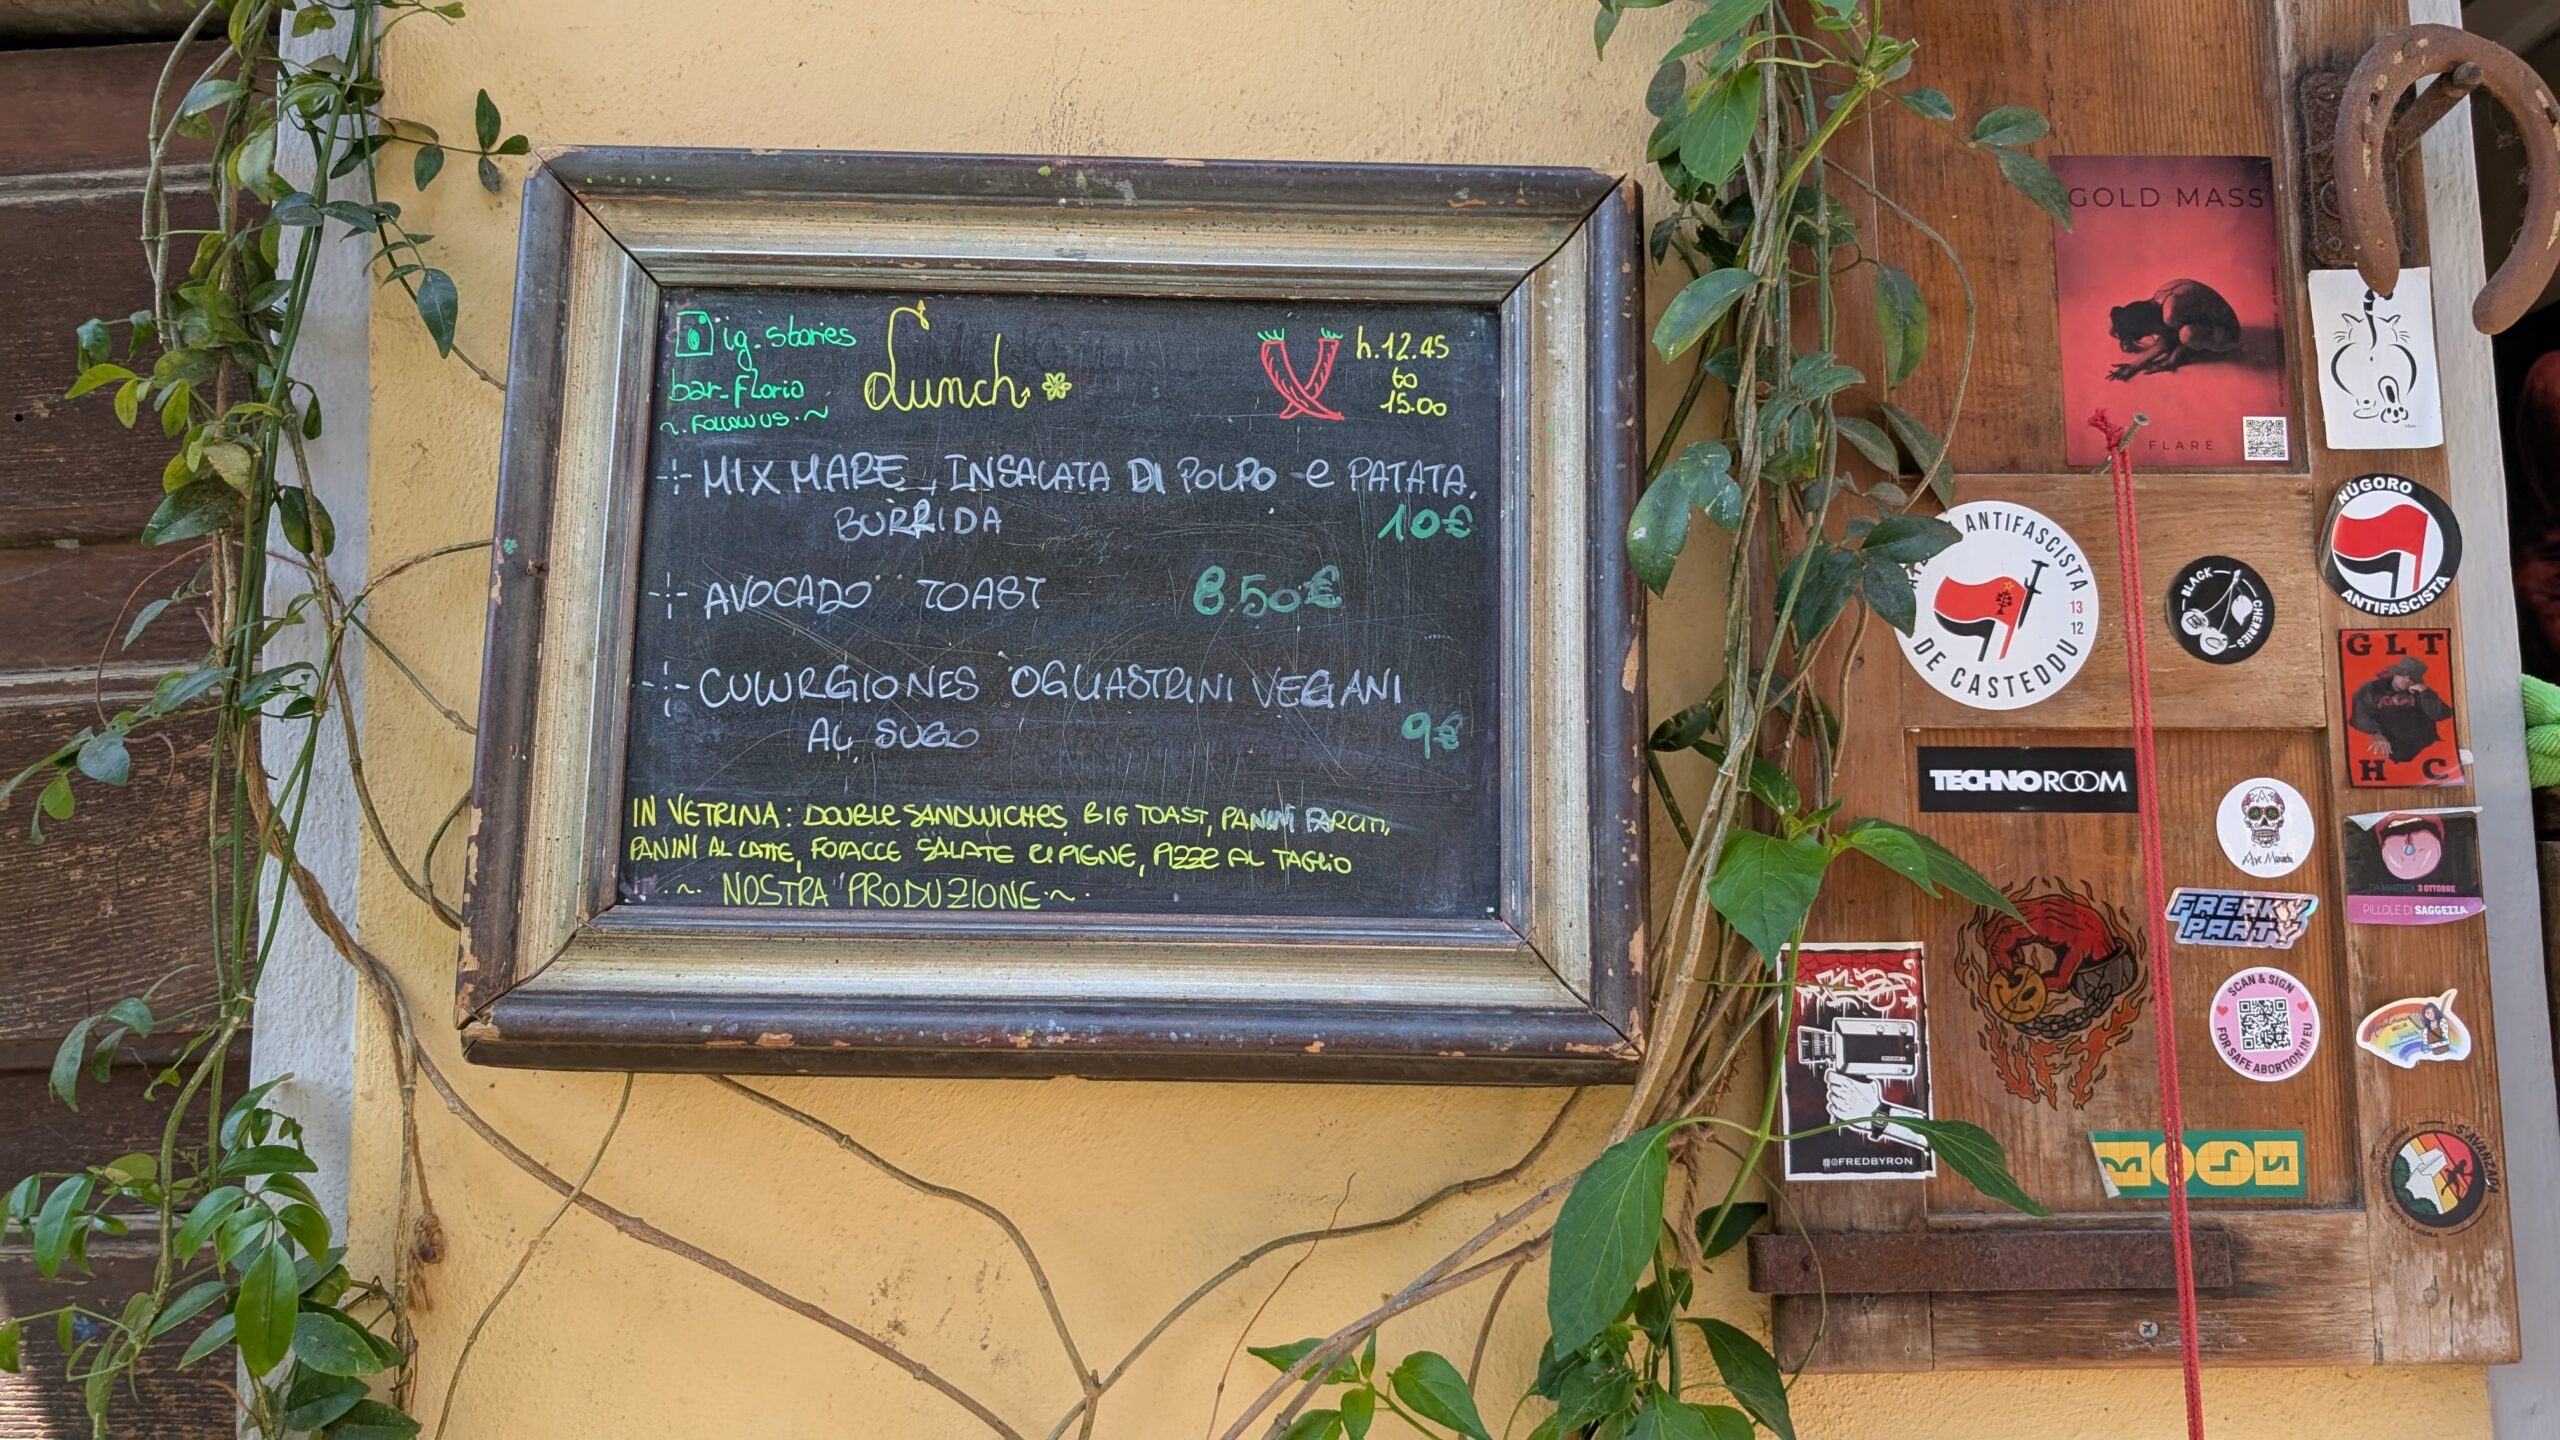 ig. stories
bar_florio
~. FOLLOW US .~
Lunch
h. 12.45
to
15.00
MIX MARE, INSALATA DI POLPO e PATATA,
BURRIDA 10€
AVOCADO TOAST 8.50€
CULURGIONES OGLIASTRINI VEGANI
AL SUGO 9€
IN VETRINA: DOUBLE SANDWICHES, BIG TOAST, PANINI FARCITI,
PANINI AL LATTE, FOCACCE SALATE RIPIENE, PIZZE AL TAGLIO
~ NOSTRA PRODUZIONE ~
GOLD MASS
FLARE
NÙGORO
ANTIFASCISTA
ANTIFASCISTA
DE CASTEDDU
13
12
BLACK
CHERRIES
GLT
HC
TECHNOROOM
Ave Maria
3 OTTOBRE
PILLOLE DI SAGGEZZA
FREAKY
PARTY
SCAN & SIGN
FOR SAFE ABORTION IN EU
@FREDBYRON
S'AVANZADA